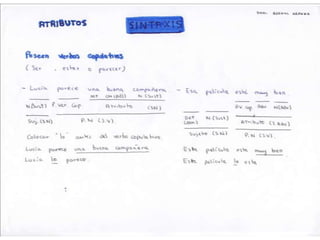 ATRIBUTOS
SINTAXIS
Poseen verbos copulativos
(Ser, estar o parecer)
- Lucía parece una buena compañera
N(Sust) P. ver Cop Atributo (SN)
Suj. (SN) P.N (S.V).
Colocar "lo" antes del verbo copulativo.
Lucía parece una buena compañera
Lucía lo parece.
- Esa película está muy bien
Det N (Sust) Atributo (S.Adv)
Sujeto (SN) P.N (SV).
Esta película está muy bien
Esta película lo está